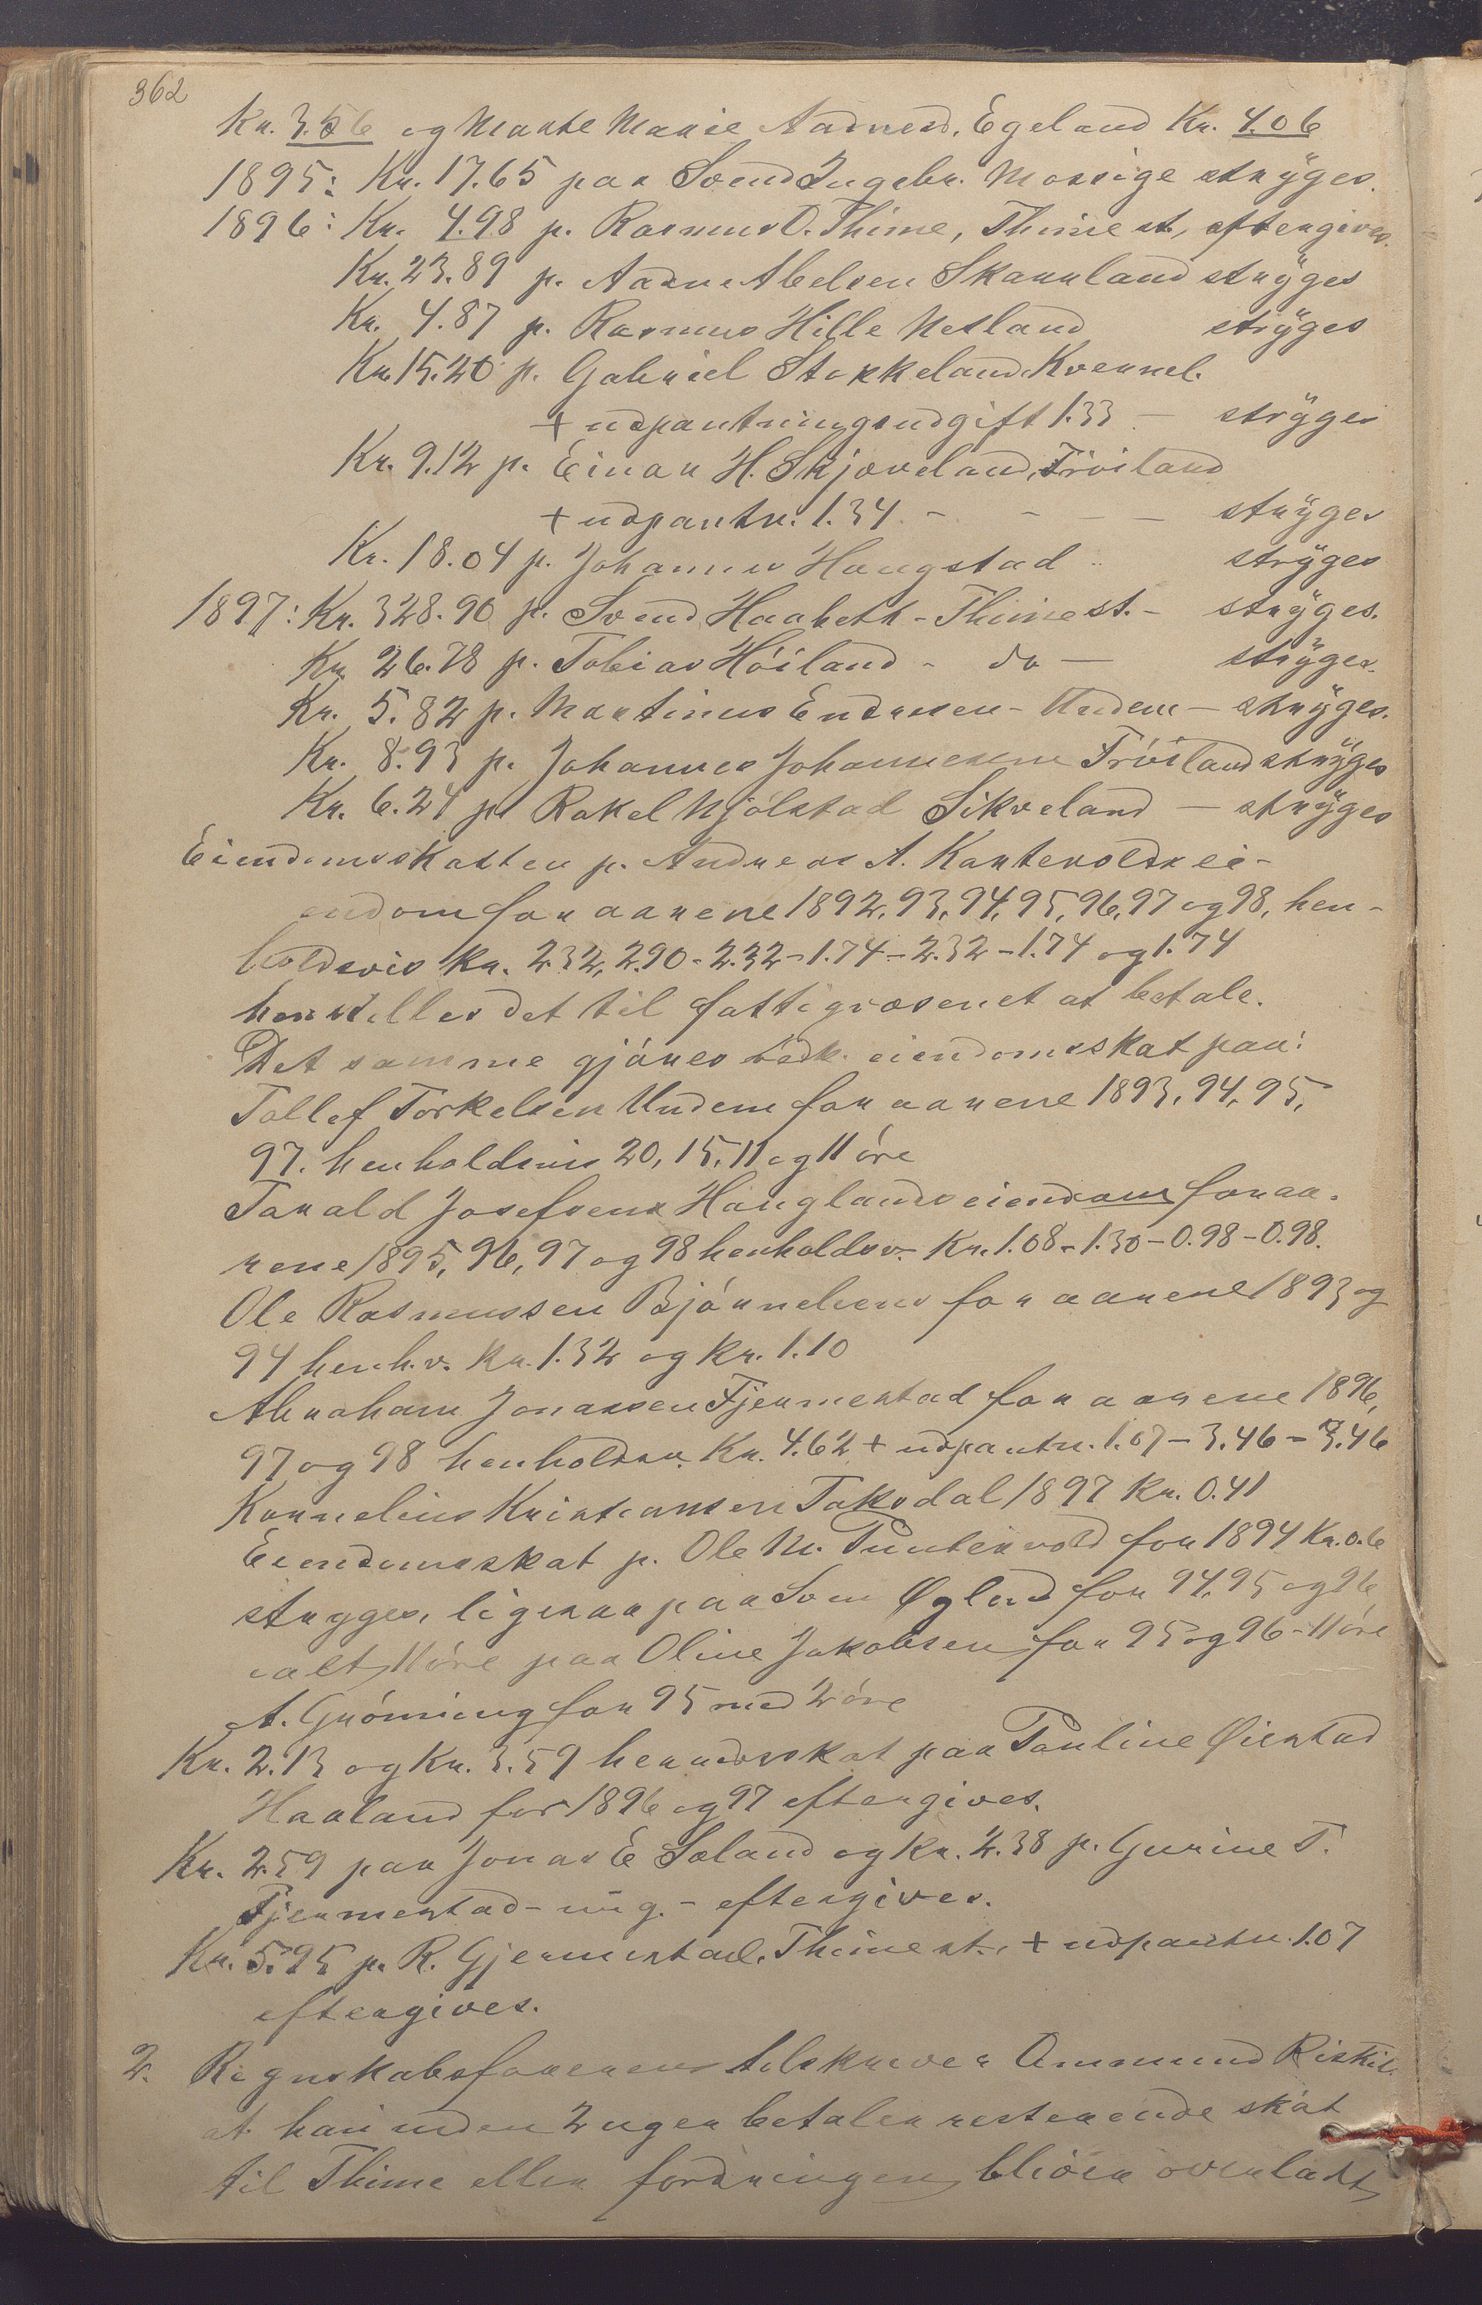 362
Kr. 3.56 og Marte Marie Aadnesd. Egeland Kr. 4.06
1895: Kr. 17.65 paa Svend Ingebr. Mossige stryges.
1896: Kr. 4.98 p. Rasmus O. Thime, Thime st., eftergives.
Kr. 23.89 p. Aadne Abelsen Skarland stryges
Kr. 4.87 p. Rasmus Hille Netland stryges
Kr. 15.20 p. Gabriel Stokkeland, Kvernel.
+ udpantningsudgift 1.33 — stryges
Kr. 9.12 p. Einar H. Skjæveland, Fröiland
+ udpantn. 1.34. - - — stryges
Kr. 18.04 p. Johannes Haugstad .. stryges
1897: Kr. 328.90 p. Svend Haabeth - Thime st. - stryges.
Kr. 26.78 p. Tobias Höiland - do — stryges.
Kr. 5.82 p. Martinus Endresen - Undem — stryges.
Kr. 8.93 p. Johannes Johannesen Fröiland stryges
Kr. 6.24 p. Rakel Njölstad Sikveland — stryges
Eiendomsskatten p. Andreas A. Kartevolds ei-
endom for aarene 1892, 93, 94, 95, 96, 97 og 98, hen-
holdsvis Kr. 2.32, 2.90 - 2.32 - 1.74 - 2.32 - 1.74 og 1.74
henstilles det til fattigvæsenet at betale.
Det samme gjöres vedk. eiendomsskat paa:
Tollef Torkelsen Undem for aarene 1893, 94, 95,
97. henholdsvis 20, 15, 11 og 11 öre
Tarald Josefsens Hauglands eiendom for aa-
rene 1895, 96, 97 og 98 henholdsv. Kr. 1.08 - 1.30 - 0.98 - 0.98.
Ole Rasmussen for aarene 1893 og
94 henh.v. Kr. 1.32 og Kr. 1.10
Abraham Jonassen Fjermestad for aarene 1896,
97 og 98 henholdsv. Kr. 4.62 + udpantn. 1.07 - 3.46 - 3.46
Kornelius Kristiansen Taksdal 1897 Kr. 0.41
Eiendomsskat p. Ole M. Puntervold for 1894 Kr. 0.6
stryges, ligesaa paa Sven Øglend for 94, 95 og 96,
ialt 11 öre paa Oline Jakobsen for 95 og 96 - 11 öre
A. Gröning for 95 med 2 öre
Kr. 2.13 og Kr. 3.59 herredsskat paa Pauline Øiestad
Haaland for 1896 og 97 eftergives.
Kr. 2.59 paa Jonas E Sæland og Kr. 2.38 p. Gurine T.
Fjermestad - - eftergives.
Kr. 5.95 p. R. Gjermestad, Thime st. + udpantn. 1.07
eftergives.
2. Regnskabsföreren tilskriver Ommund
at han inden 2 uger betaler resterende skat
til Thime eller fordringen bliver overladt